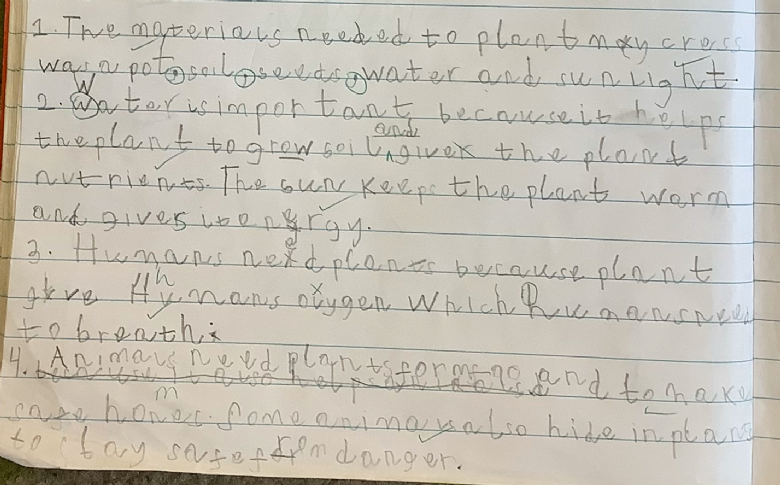 1. The materials needed to plant my cress
was a pot, soil, seeds, water and sunlight.
2. Water is important, because it helps
the plant to grow soil and gives the plant
nutrients. The sun keeps the plant warm
and gives it energy.
3. Humans need plants because plant
give Humans oxygen which humans need
to breath.
4. Animals need plants for and to make
homes. Some animals also hide in plans
to stay safe from danger.